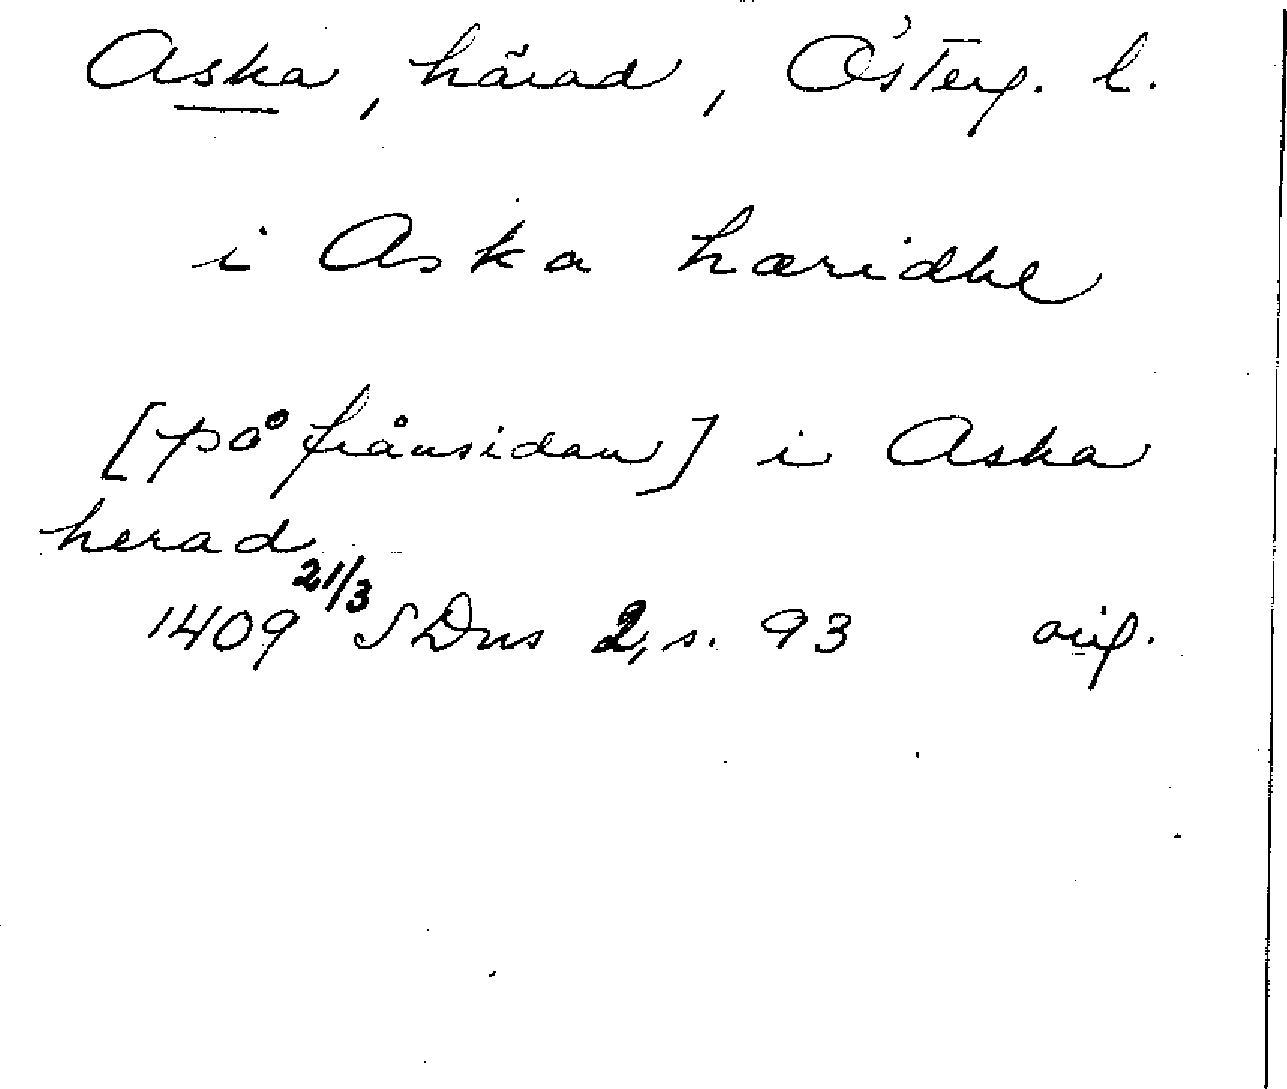 Aska, härad, Österg. l.
i Aska hæridhe
[på frånsidan] i Aska
herad
1409 21/3 SDns 2, s. 93 orig.